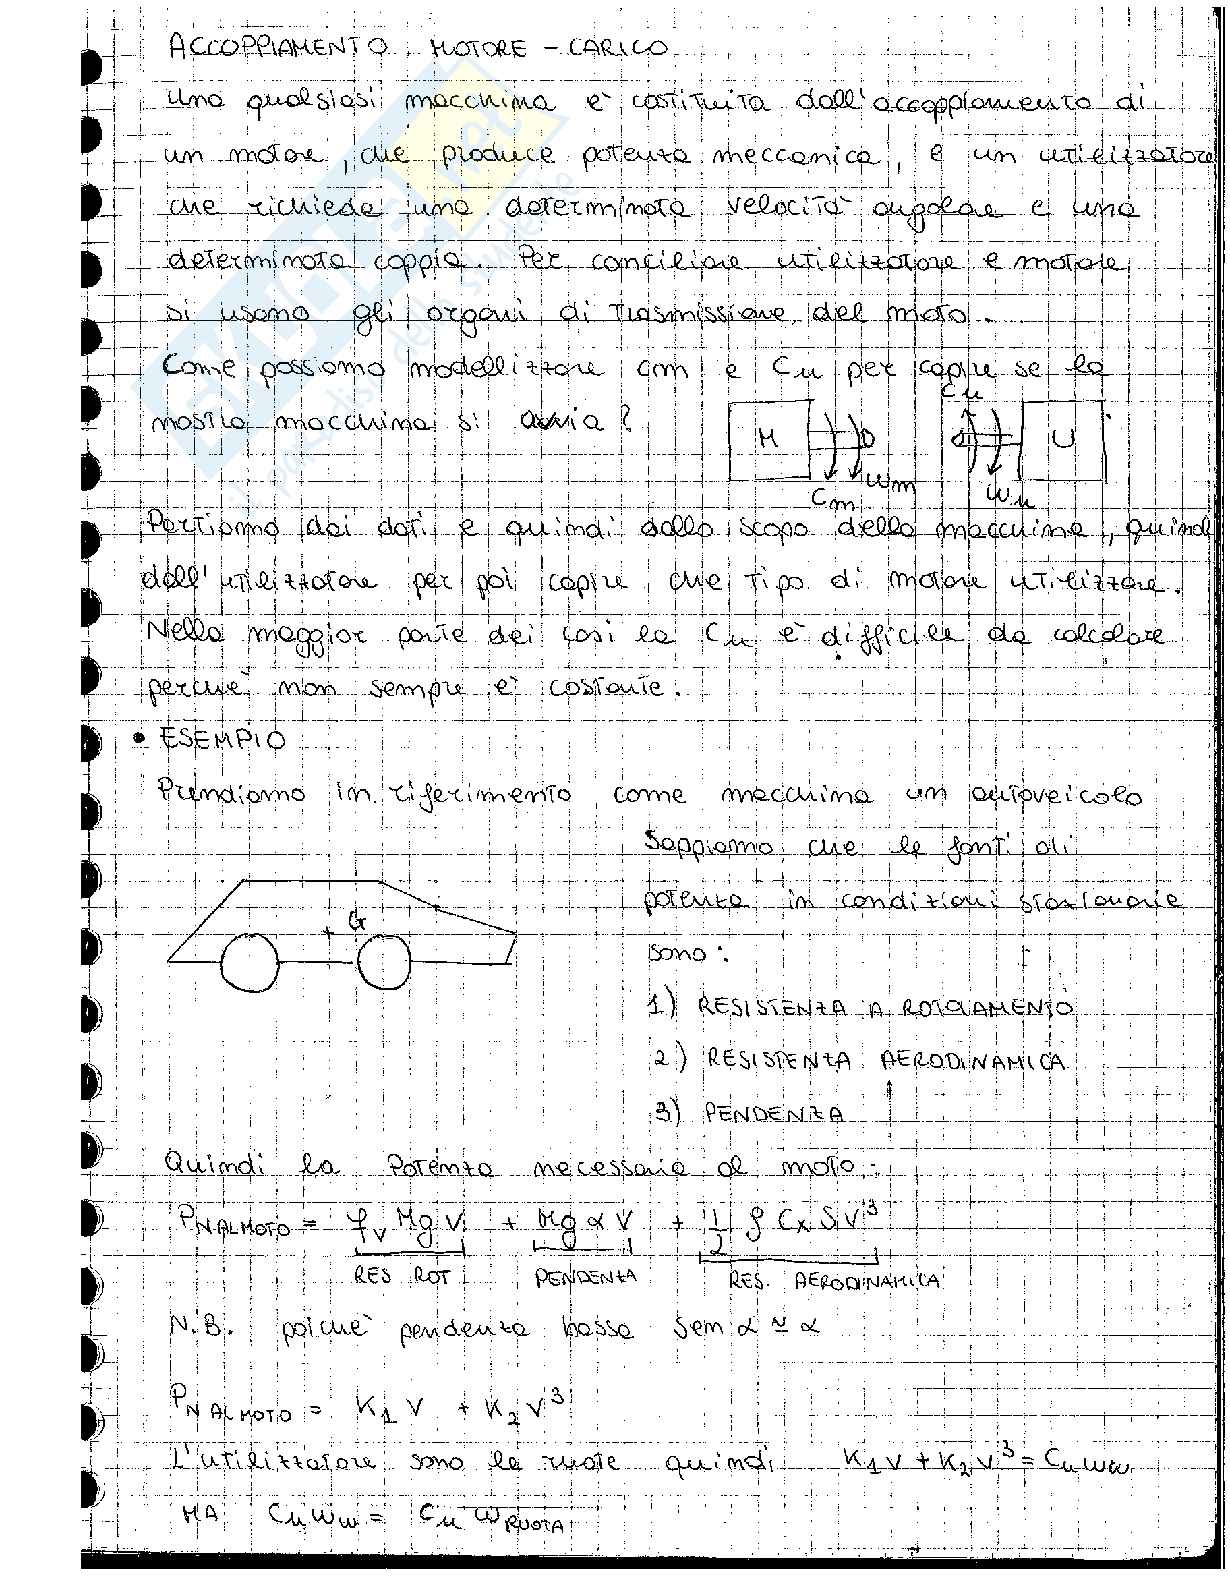 ACCOPPIAMENTO MOTORE - CARICO
Una qualsiasi macchina è costituita dall'accoppiamento di
un motore, che produce potenza meccanica, e un utilizzatore
che richiede una determinata velocità angolare e una
determinata coppia. Per conciliare utilizzatore e motore
si usano gli organi di trasmissione del moto.
Come possiamo modellizzare Cm e Cu per capire se la
nostra macchina si avvia?
M Cm ωm Cu ωu U
Partiamo dai dati e quindi dallo scopo della macchina, quindi
dall'utilizzatore per poi capire che tipo di motore utilizzare.
Nella maggior parte dei casi la Cu è difficile da calcolare
perchè non sempre è costante.
• ESEMPIO
Prendiamo in riferimento come macchina un autoveicolo
G
Sappiamo che le fonti di
potenza in condizioni stazionarie
sono:
1) RESISTENZA A ROTOLAMENTO
2) RESISTENZA AERODINAMICA
3) PENDENZA
Quindi la Potenza necessaria al moto:
P N AL MOTO = fv Mg V + Mg α V + 1/2 ρ Cx S V³
RES ROT PENDENZA RES. AERODINAMICA
N.B. poichè pendenza bassa sen α ≃ α
P N AL MOTO = K1 V + K2 V³
L'utilizzatore sono le ruote quindi K1 V + K2 V³ = Cu ωu
MA Cu ωu = Cu ω RUOTA
SKUOLA.net
il paradiso dello studente